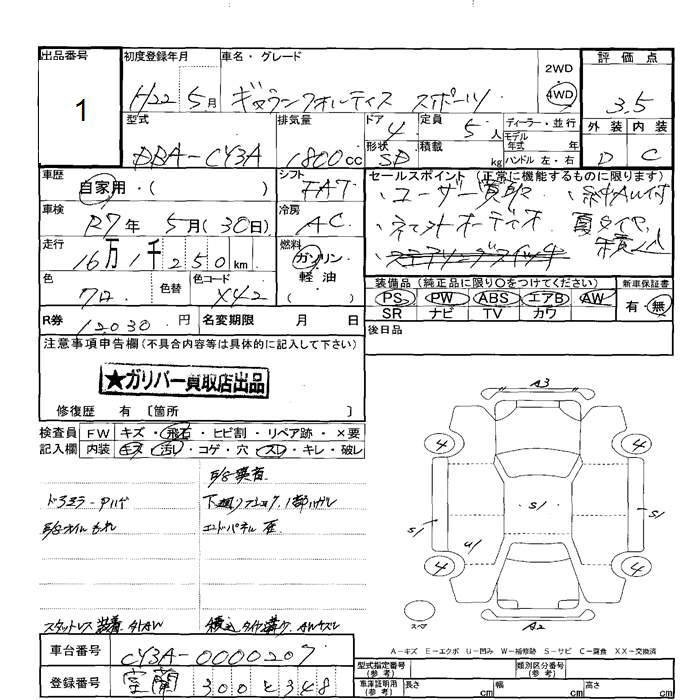 出品番号 初度登録年月 車名・グレード 評価点
1
H22年 5月 ギャランフォルティス スポーツ 2WD 4WD 3.5
型式 排気量 ドア 4 定員 5人 ディーラー・並行 外装 内装
DBA-CY3A 1800cc 形状 SD 積載 kg モデル年式 年 ハンドル 左・右 D C
車歴 自家用・( ) シフト FAT セールスポイント (正常に機能するものに限ります)
・ユーザー買取 ・純中AW付
車検 R7年 5月(30日) 冷房 AC
・ネットオーディオ 夏タイヤ積込
走行 16万1千250km 燃料 ガソリン・軽油 ( )
・ステアリングスイッチ
色 クロ 色替 色コード X42
装備品 (純正品に限り○をつけてください) 新車保証書
PS PW ABS エアB AW 有・無
SR ナビ TV カワ
R券 12030円 名変期限 月 日
後日品
注意事項申告欄(不具合内容等は具体的に記入して下さい)
★ガリバー買取店出品
修復歴 有 〔箇所 〕
検査員 FW キズ・飛石・ヒビ割・リペア跡・×要
記入欄 内装 キズ・汚レ・コゲ・穴・スレ・キレ・破レ
ドラミラーPハゲ 下廻りフショク、1部ハガレ
E/Gオイルもれ エンドパネル 歪
スタットレス装着 外AW 積込タイヤ溝 AWキズ
A3
4 4
S1 S1 S1
U1
4 4
スペア A2
A-キズ E-エクボ U-凹み W-補修跡 S-サビ C-腐食 XX-交換済
車台番号 CY3A-0000207
登録番号 室蘭 300 と 348
型式指定番号(参考) 類別区分番号(参考)
車庫証明用(参考) 長さ cm 幅 cm 高さ cm